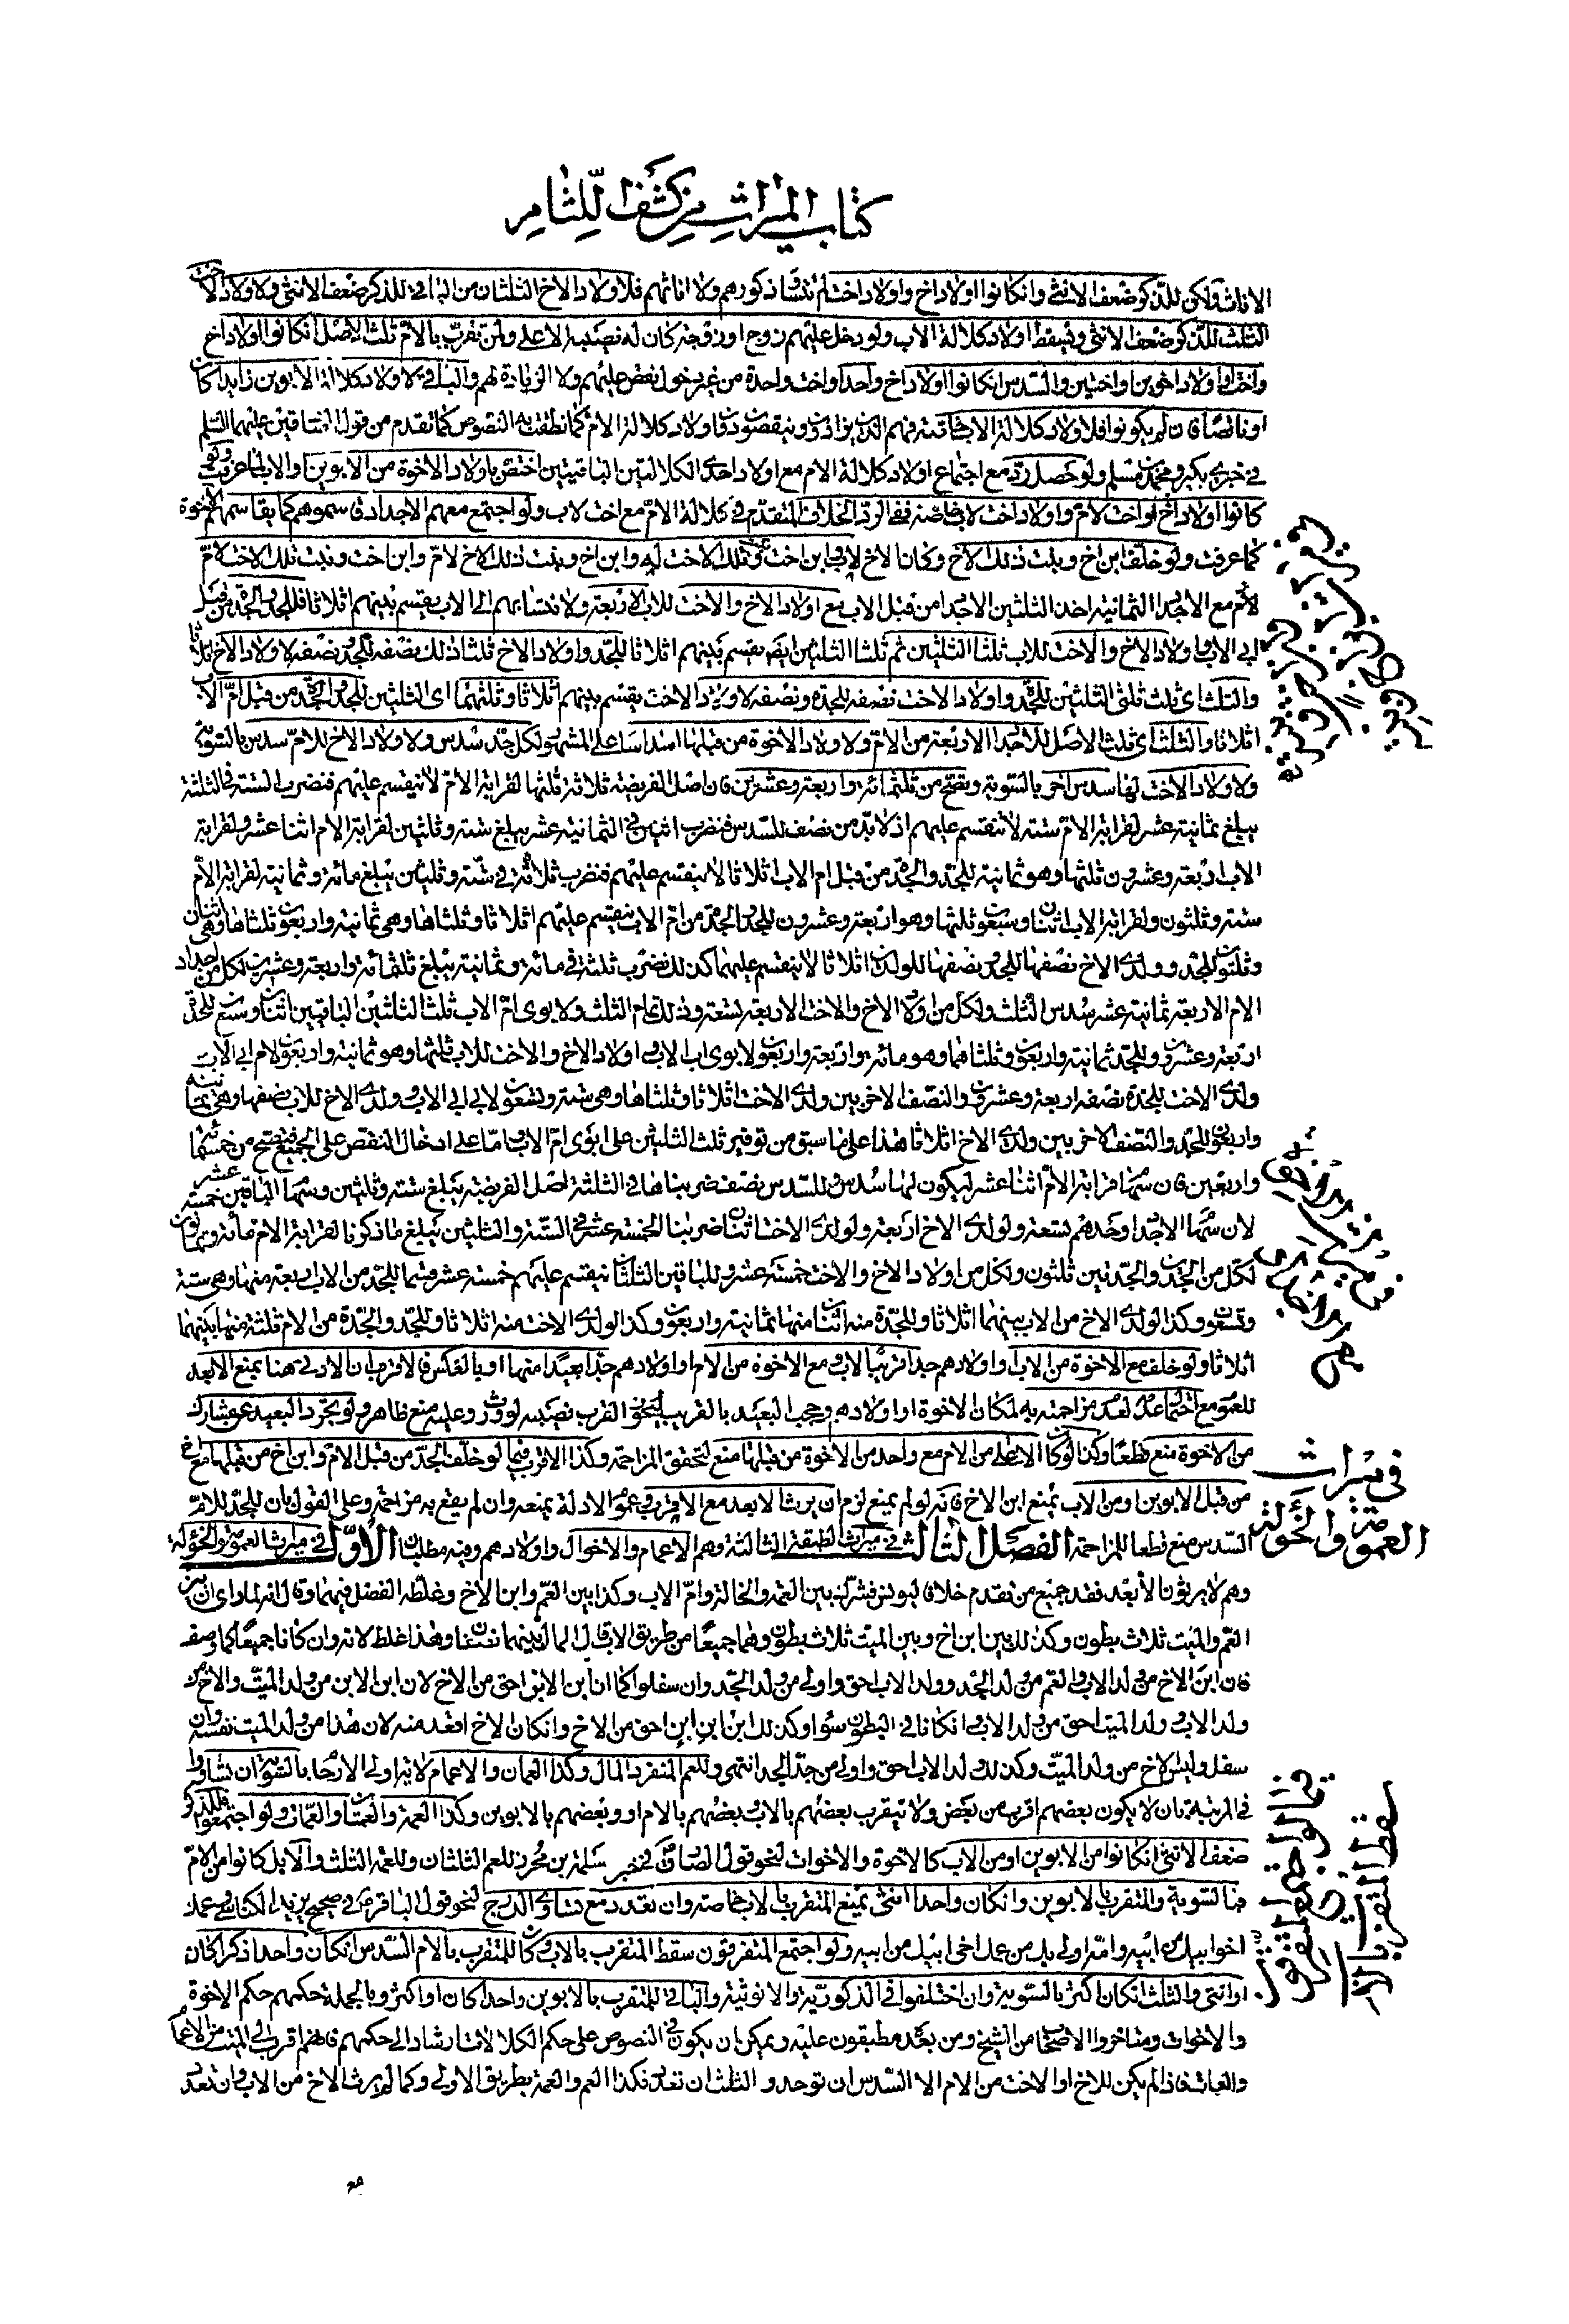 كتاب الميراث من كشف اللثام
الاناث ولكن للذكر ضعف الانثى وان كانوا اولاد اخ واولاد اخت لم تتساو ذكورهم ولا اناثهم فلاولاد الاخ الثلثان من الباقى للذكر ضعف الانثى ولاولاد الاخت
الثلث للذكر ضعف الانثى ويسقط اولاد كلالة الاب ولو دخل عليهم زوج او زوجة كان له نصيبه الاعلى ولمن تقرب بالام ثلث الاصل ان كانوا اولاد اخ
واخت او اولاد اخوين او اختين والسدس ان كانوا اولاد اخ واحد او اخت واحدة من غير دخول نقص عليهم ولا الزيادة لهم والباقى لاولاد كلالة الابوين زايدا كان
او ناقصا فان لم يكونوا فلاولاد كلالة الاب خاصة فهم الذين يزادون وينقصون دون اولاد كلالة الام كما نطقت به النصوص كما تقدم من قول الصادقين عليهما السلم
فى خبرى بكير ومحمد بن مسلم ولو حصل رد مع اجتماع اولاد كلالة الام مع اولاد احدى الكلالتين الباقيتين اختص باولاد الاخوة من الابوين او الاب لما عرفت ولو
كانوا اولاد اخ او اخت لام واولاد اخت لاب خاصة ففى الرد الخلاف المتقدم فى كلالة الام مع اخت لاب ولو اجتمع معهم الاجداد قاسموهم كما يقاسمهم الاخوة
كما عرفت ولو خلف ابن اخ وبنت ذلك الاخ وكان الاخ لاب وابن اخت وبنت تلك الاخت له وابن اخ وبنت ذلك الاخ لام وابن اخت وبنت تلك الاخت لام
لام مع الاجداد الثمانية اخذ الثلثين الاجداد من قبل الاب مع اولاد الاخ والاخت للاب الاربعة ولانتسابهم الى الاب يقسم بينهم اثلاثا فللجد والجدة من قبل
ابى الاب واولاد الاخ والاخت للاب ثلثا الثلثين ثم ثلثا الثلثين ايضا يقسم بينهم اثلاثا للجد واولاد الاخ ثلثا ذلك نصفه للجد ونصفه لاولاد الاخ اثلاثا
والثلث اى ثلث ثلثى الثلثين للجدة واولاد الاخت نصفه للجدة ونصفه لاولاد الاخت يقسم بينهم اثلاثا وثلثهما اى الثلثين للجد والجدة من قبل ام الاب
اثلاثا والثلث اى ثلث الاصل للاجداد الاربعة من الام ولاولاد الاخوة من قبلها اسداسا على المشهور لكل جد سدس ولاولاد الاخ للام سدس بالسوية
ولاولاد الاخت لها سدس اخر بالسوية وتصح من ثلثمائة واربعة وعشرين فان اصل الفريضة ثلاثة ثلثها لقرابة الام لا ينقسم عليهم فتضرب الستة فى الثلثة
يبلغ ثمانية عشر لقرابة الام ستة لا تنقسم عليهم اذ لا بد من نصف للسدس فنضرب اثنين فى الثمانية عشر يبلغ ستة وثلثين لقرابة الام اثنا عشر ولقرابة
الاب اربعة وعشرون ثلثها وهو ثمانية للجد والجدة من قبل ام الاب اثلاثا لا ينقسم عليهم فنضرب ثلاثة فى ستة وثلثين يبلغ مائة وثمانية لقرابة الام
ستة وثلثون ولقرابة الاب اثنان وسبعون ثلثها وهو اربعة وعشرون للجد والجدة من ام الاب ينقسم عليهم اثلاثا وثلثاها وهى ثمانية واربعون ثلثاها وهى اثنان
وثلثون للجد وولدى الاخ نصفها للجد ونصفها للولدين اثلاثا لا ينقسم عليهما كذلك نضرب ثلثة فى مائة وثمانية يبلغ ثلثمائة واربعة وعشرين لكل من اجداد
الام الاربعة ثمانية عشر سدس الثلث ولكل من اولاد الاخ والاخت الاربعة تسعة وذلك تمام الثلث ولابوى ام الاب ثلث الثلثين الباقيين اثنان وسبعون للجدة
اربعة وعشرون وللجد ثمانية واربعون وثلثاهما وهو مائة واربعة واربعون لابوى اب الاب واولاد الاخ والاخت للاب ثلثها وهو ثمانية واربعون لام ابى الاب
ولدى الاخت للجدة نصفه اربعة وعشرون والنصف الاخر بين ولدى الاخت اثلاثا وثلثاها وهى ستة وتسعون لابى ابى الاب وولدى الاخ للاب نصفها وهى ثمانية
واربعون للجد والنصف الاخر بين ولدى الاخ اثلاثا هذا على ما سبق من توفير ثلث الثلثين على ابوى ام الاب واما على ادخال النقص على الجميع فتصح من خمسمائة
واربعين فان سهام قرابة الام اثنا عشر ليكون لها سدس وللسدس نصف ضربناها فى الثلثة اصل الفريضة يبلغ ستة وثلثين وسهام الباقين خمسة عشر
لان سهام الاجداد وحدهم تسعة ولولدى الاخ اربعة ولولدى الاخت اثنان ضربنا الخمسة عشر فى الستة والثلثين يبلغ ما ذكرنا لقرابة الام مائة وثمانون
لكل من الجدين والجدتين ثلثون ولكل من اولاد الاخ والاخت خمسة عشر وللباقين الثلثان ينقسم عليهم خمسة عشر قسما للجد من الاب اربعة منها وهى ستة
وتسعون وكذا لولدى الاخ من الاب بينهما اثلاثا وللجدة منه اثنان منها ثمانية واربعون وكذا لولدى الاخت منه اثلاثا وللجد والجدة من الام ثلثة منها بينهما
اثلاثا ولو خلف مع الاخوة من الاب او اولادهم جدا قريبا لاب ومع الاخوة من الام او اولادهم جدا بعيدا منها او بالعكس فالاقرب ان الادنى هنا يمنع الابعد
للعموم مع احتمال عدمه لعدم مزاحمته به لمكان الاخوة او اولادهم وحجب البعيد بالقريب
من الاخوة منع قطعا وكذا لو كان الاعلى من الام مع واحد من الاخوة من قبلها منع لتحقق المزاحمة وكذا الاقرب فيما لو خلف الجد من قبل الام وابن اخ من قبلها مع اخ
من قبل الابوين او من الاب يمنع ابن الاخ فانه لو لم يمنع لزم ان يرث الابعد مع الاقرب فى عموم الادلة يمنعه وان لم يقع به مزاحمة وعلى القول بان للجد للام
السدس منع قطعا للمزاحمة الفصل الثالث فى ميراث الطبقة الثالثة وهم الاعمام والاخوال واولادهم وفيه مطلبان الاول فى ميراث العمومة والخؤلة
وهم لا يرثون الا بعد فقد جميع من تقدم خلافا ليونس فشرك بين العمة والخالة وام الاب وكذا بين العم وابن الاخ وغلطه الفضل فيهما وقال فى
العم والميت ثلاث بطون وكذلك بين ابن اخ وبين الميت ثلاث بطون وهما جميعا من طريق الاب قال المال بينهما نصفان وهذا غلط لانه وان كانا جميعا كما وصف
فان ابن الاخ من ولد الاب والعم من ولد الجد وولد الاب احق واولى من ولد الجد وان سفلوا كما ان ابن الابن احق من الاخ لان ابن الابن من ولد الميت والاخ من
ولد الاب وولد الميت احق من ولد الاب وان كانا فى البطون سواء وكذلك ابن ابن ابن احق من الاخ وان كان الاخ اقعد منه لان هذا من ولد الميت نفسه وان
سفل وليس الاخ من ولد الميت وكذلك ولد الاب احق واولى من جد الجد انتهى وللعم المنفرد المال وكذا العمان والاعمام لاية اولى الارحام بالسوية ان تساووا
فى المرتبة بان لا يكون بعضهم اقرب من بعض ولا يتقرب بعضهم بالاب وبعضهم بالام او وبعضهم بالابوين وكذا العمة والعمتان والعمات ولو اجتمعوا فللذكر
ضعف الانثى ان كانوا من الابوين او من الاب كالاخوة والاخوات لنحو قول الصادق فى خبر سلمة بن محرز للعم الثلثان وللعمة الثلث والا بل كانوا من الام
فبالسوية والمتقرب بالابوين وان كان واحدا انثى يمنع المتقرب بالاب خاصة وان تعدد مع تساوى الدرج لنحو قول الباقر فى صحيح يزيد الكناسى عمك
اخو ابيك من ابيه وامه اولى بك من عمك اخى ابيك من ابيه ولو اجتمع المتفرقون سقط المتقرب بالاب وكان للمتقرب بالام السدس ان كان واحدا ذكرا كان
او انثى والثلث ان كان اكثر بالسوية وان اختلفوا فى الذكورية والانوثية والباقى للمتقرب بالابوين واحدا كان او اكثر وبالجملة حكمهم حكم الاخوة
والاخوات ومتاخروا الاصحاب من الشيخ ومن بعده مطبقون عليه ويمكن ان يكون فى النصوص على حكم الكلالات ارشاد الى حكمهم فانهم اقرب الى الميت من الاعمام
والعمات فاذا لم يكن للاخ او الاخت من الام الا السدس ان توحد والثلث ان تعدد فكذا العم والعمة بطريق الاولى وكما لم يرث الاخ من الاب وان تعدد
فى ميراث
العمومة والخؤلة
لو اجتمع المتفرقون
سقط المتقرب بالاب